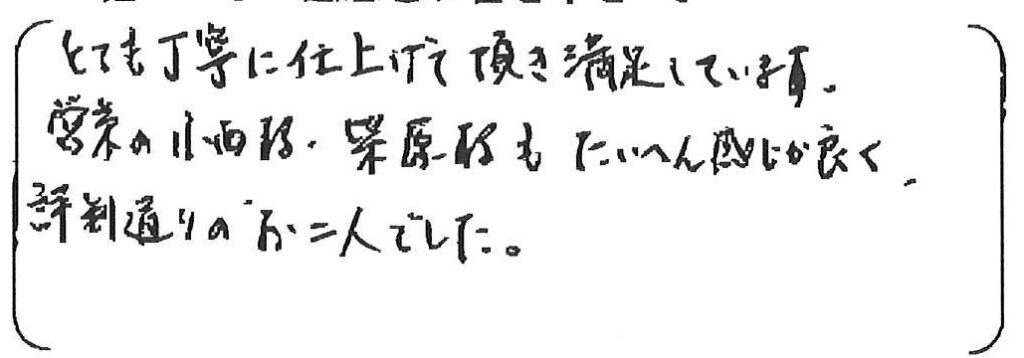 とても丁寧に仕上げて頂き満足しています。
営業の小西様・栗原様もたいへん感じが良く、
評判通りのお二人でした。